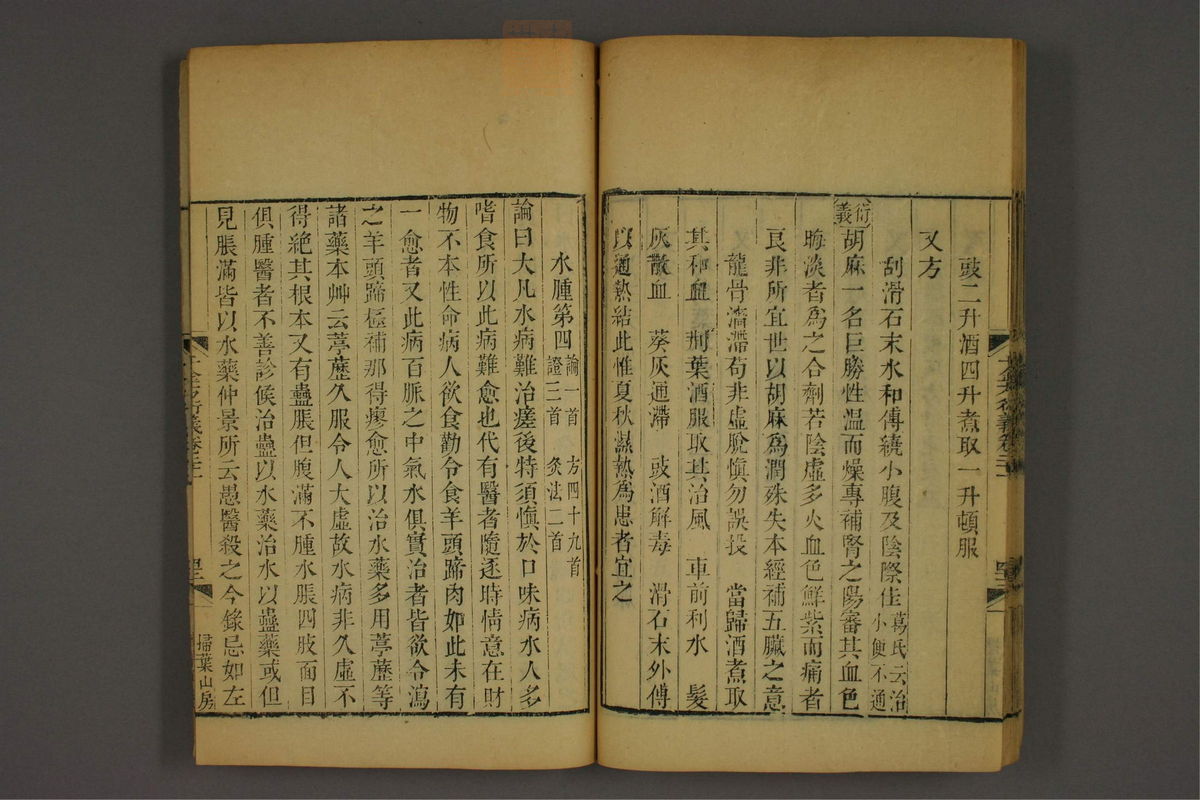 豉二升酒四升煮取一升頓服
又方
刮滑石末水和傅繞小腹及陰際佳葛氏云治小便不通
衍義胡麻一名巨勝性温而燥專補腎之陽審其血色
晦淡者爲之合劑若陰虛多火血色鮮紫而痛者
良非所宜世以胡麻爲潤殊失本經補五臟之意
龍骨濇滯苟非虛脫愼勿誤投　當歸酒煮取
其和血　荆葉酒服取其治風　車前利水　髮
灰散血　葵灰通滯　豉酒解毒　滑石末外傅
以通熱結此惟夏秋濕熱爲患者宜之
水腫第四論一首　方四十九首證二首　灸法二首
論曰大凡水病難治瘥後特須愼於口味病水人多
嗜食所以此病難愈也代有醫者隨逐時情意在財
物不本性命病人欲食勸令食羊頭蹄肉如此未有
一愈者又此病百脈之中氣水俱實治者皆欲令瀉
之羊頭蹄極補那得瘳愈所以治水藥多用葶藶等
諸藥本艸云葶藶久服令人大虛故水病非久虛不
得絶其根本又有蠱脹但腹滿不腫水脹四肢面目
俱腫醫者不善診候治蠱以水藥治水以蠱藥或但
見脹滿皆以水藥仲景所云愚醫殺之今錄忌如左
掃葉山房